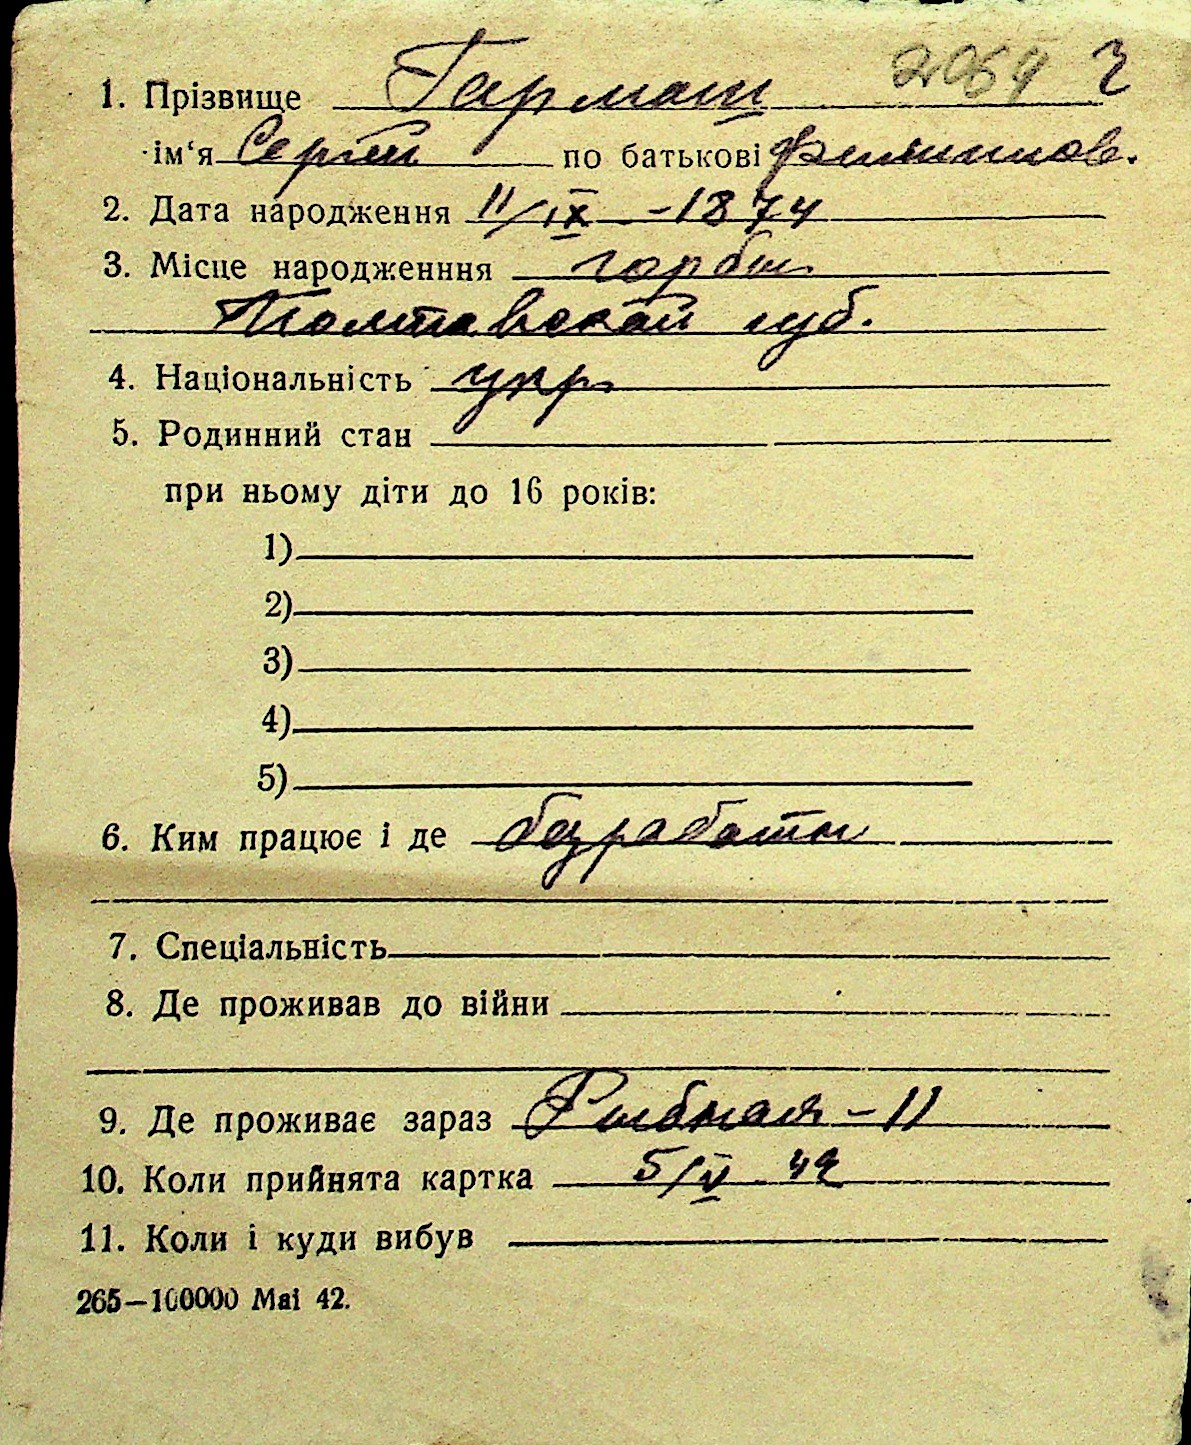 2054 2
1. Прізвище Гармаш
ім‘я Сергей по батькові Филиппов.
2. Дата народження 11/IX -1874
3. Місце народженння Горбы
Полтавской губ.
4. Національність укр
5. Родинний стан
при ньому діти до 16 років:
1)
2)
3)
4)
5)
6. Ким працює і де безработн
7. Спеціальність
8. Де проживав до війни
9. Де проживає зараз Рыбная - 11
10. Коли прийнята картка 5/V 42
11. Коли і куди вибув
265—100000 Mai 42.